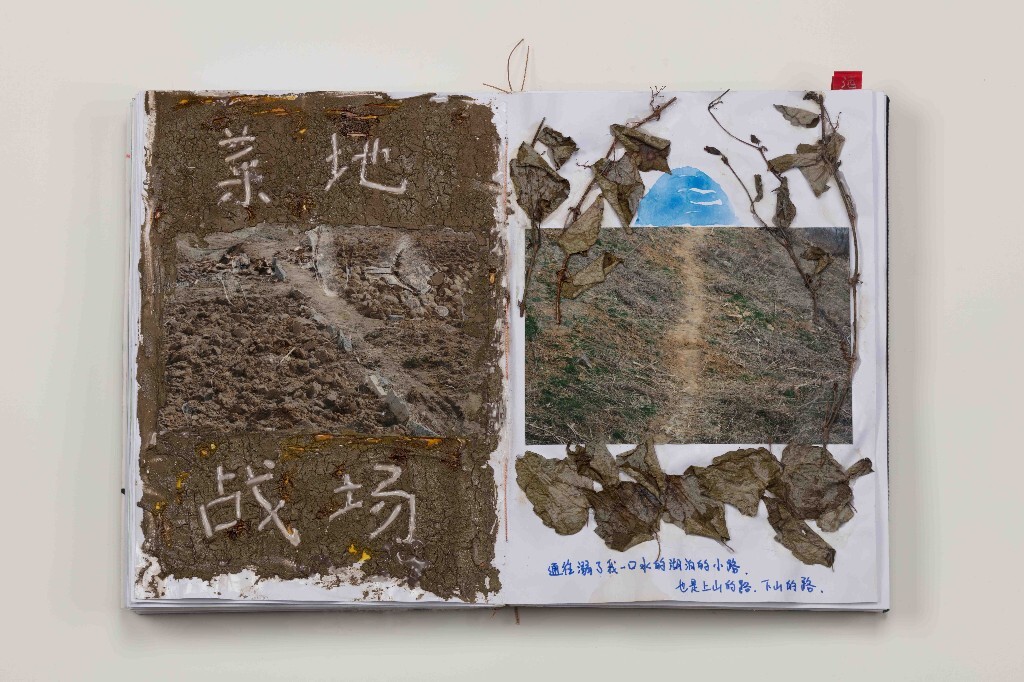 菜地
战场
通往溺了我一口水的湖泊的小路.
也是上山的路.下山的路.